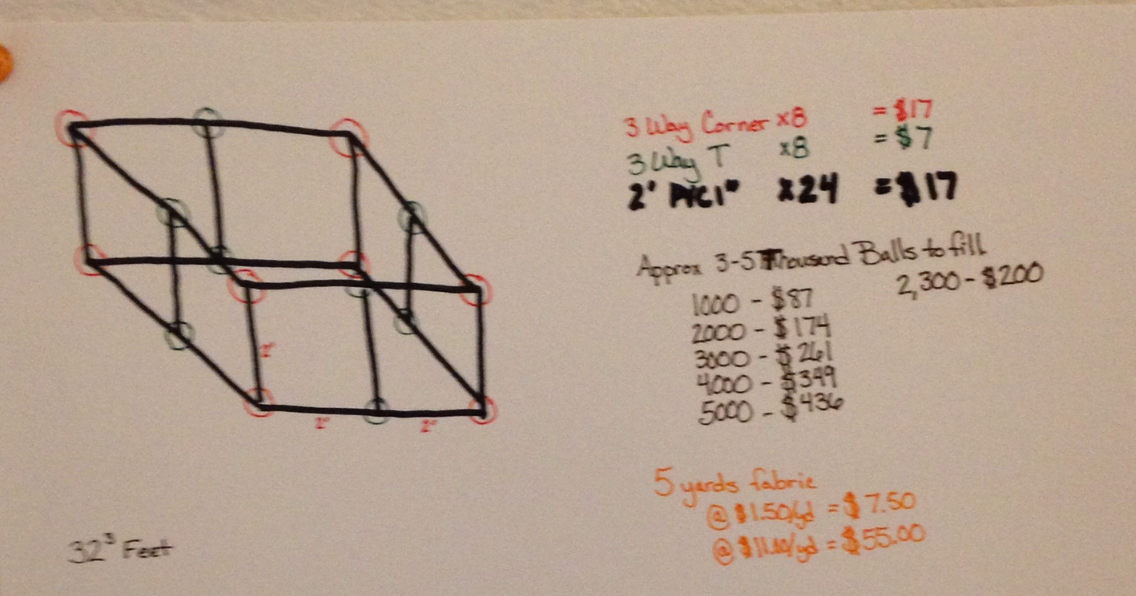 3 Way Corner x8 = $17
3 Way T x8 = $7
2' PVC 1" x24 = $17
Approx 3-5 Thousand Balls to fill
1000 - $87
2,300 - $200
2000 - $174
3000 - $261
4000 - $349
5000 - $436
2'
2'
2'
5 yards fabric
@ $1.50/yd = $7.50
@ $11.00/yd = $55.00
32³ Feet